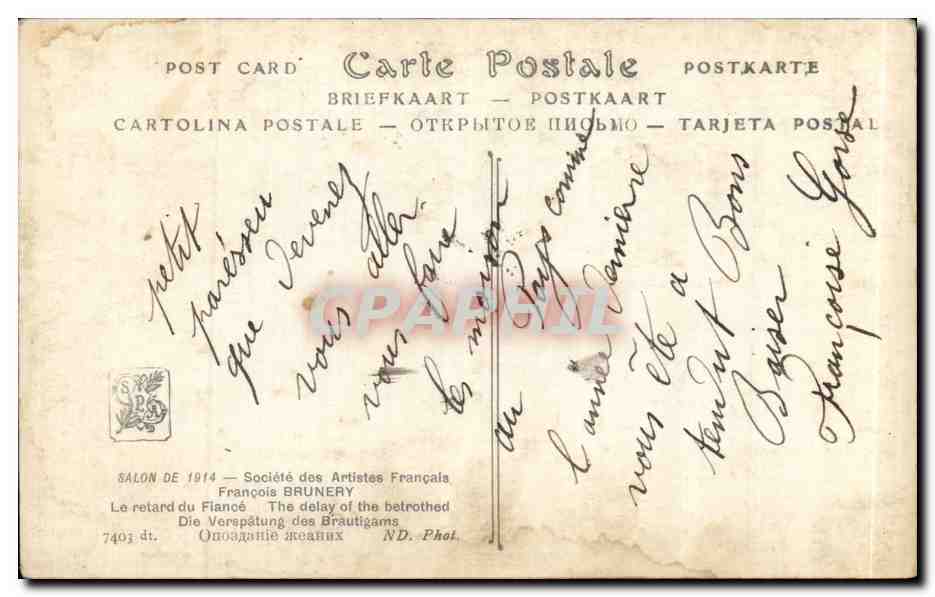 POST CARD Carte Postale POSTKARTE
BRIEFKAART — POSTKAART
CARTOLINA POSTALE — ОТКРЫТОЕ ПИСЬМО — TARJETA POSTAL
petit
parésseu
que devenez
vous aller
vous faire
les moison
au Pays comme
l'année dernière
vous ête a
tendut Bons
Baiser
Françoise Gorse
CPARPHIL
SPA
SALON DE 1914 — Société des Artistes Français
François BRUNERY
Le retard du Fiancé The delay of the betrothed
Die Verspätung des Bräutigams
7403 dt. Опозданіе жеаних ND. Phot.